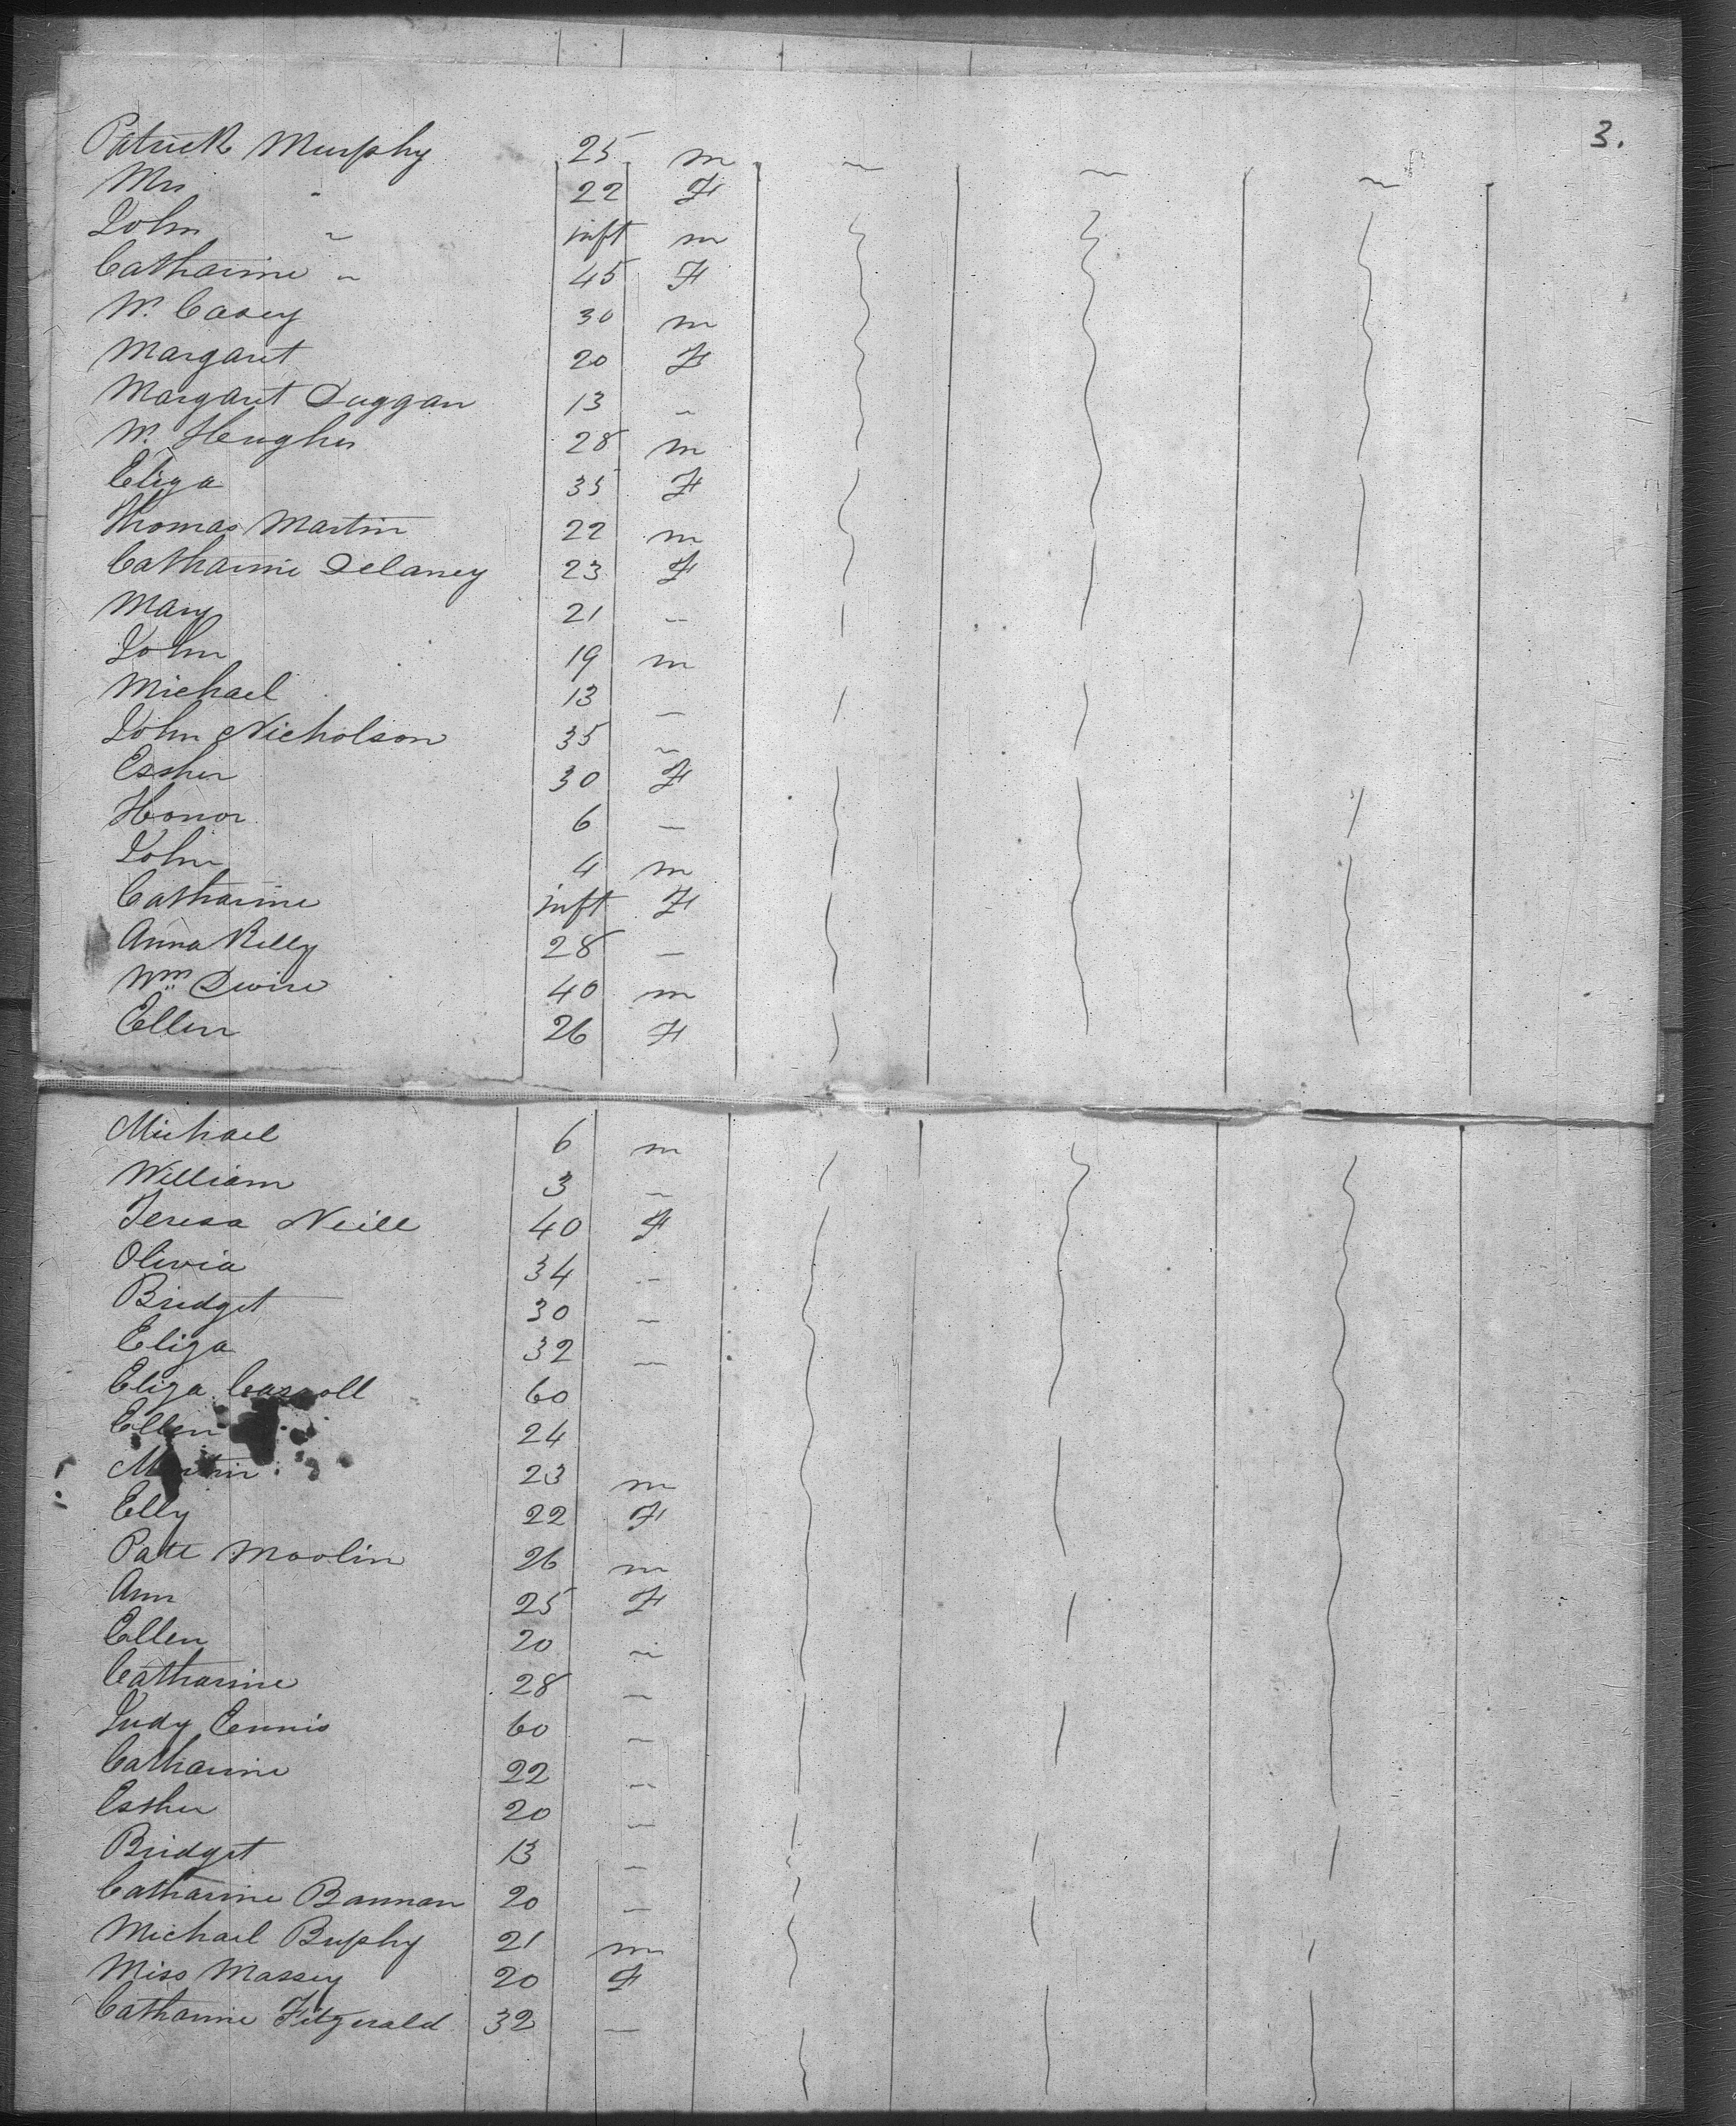 3.
Patrick Murphy 25 m ~ ~ ~
Mrs " 22 F
John " inft m
Catharine " 45 F
Wm. Casey 30 m
Margaret 20 F
Margaret Duggan 13 "
Wm. Hughes 28 m
Eliza 35 F
Thomas Martin 22 m
Catharine Delaney 23 F
Mary 21 "
John 19 m
Michael 13 "
John Nicholson 35 "
Essher 30 F
Honor 6 "
John 4 m
Catharine inft F
Anna Kelly 28 "
Wm Dwire 40 m
Ellen 26 F
Michael 6 m
William 3 "
Teresa Neill 40 F
Olivia 34 "
Bridget 30 "
Eliza 32 "
Eliza Carroll 60
Ellen 24
Martin 23 m
Elly 22 F
Patt Moolin 26 m
Ann 25 F
Ellen 20 "
Catharine 28 "
Judy Ennis 60 "
Catharine 22 "
Esther 20 "
Bridget 13 "
Catharine Bannan 20 "
Michael Buphy 21 m
Miss Massey 20 F
Catharine Fitzgerald 32 "